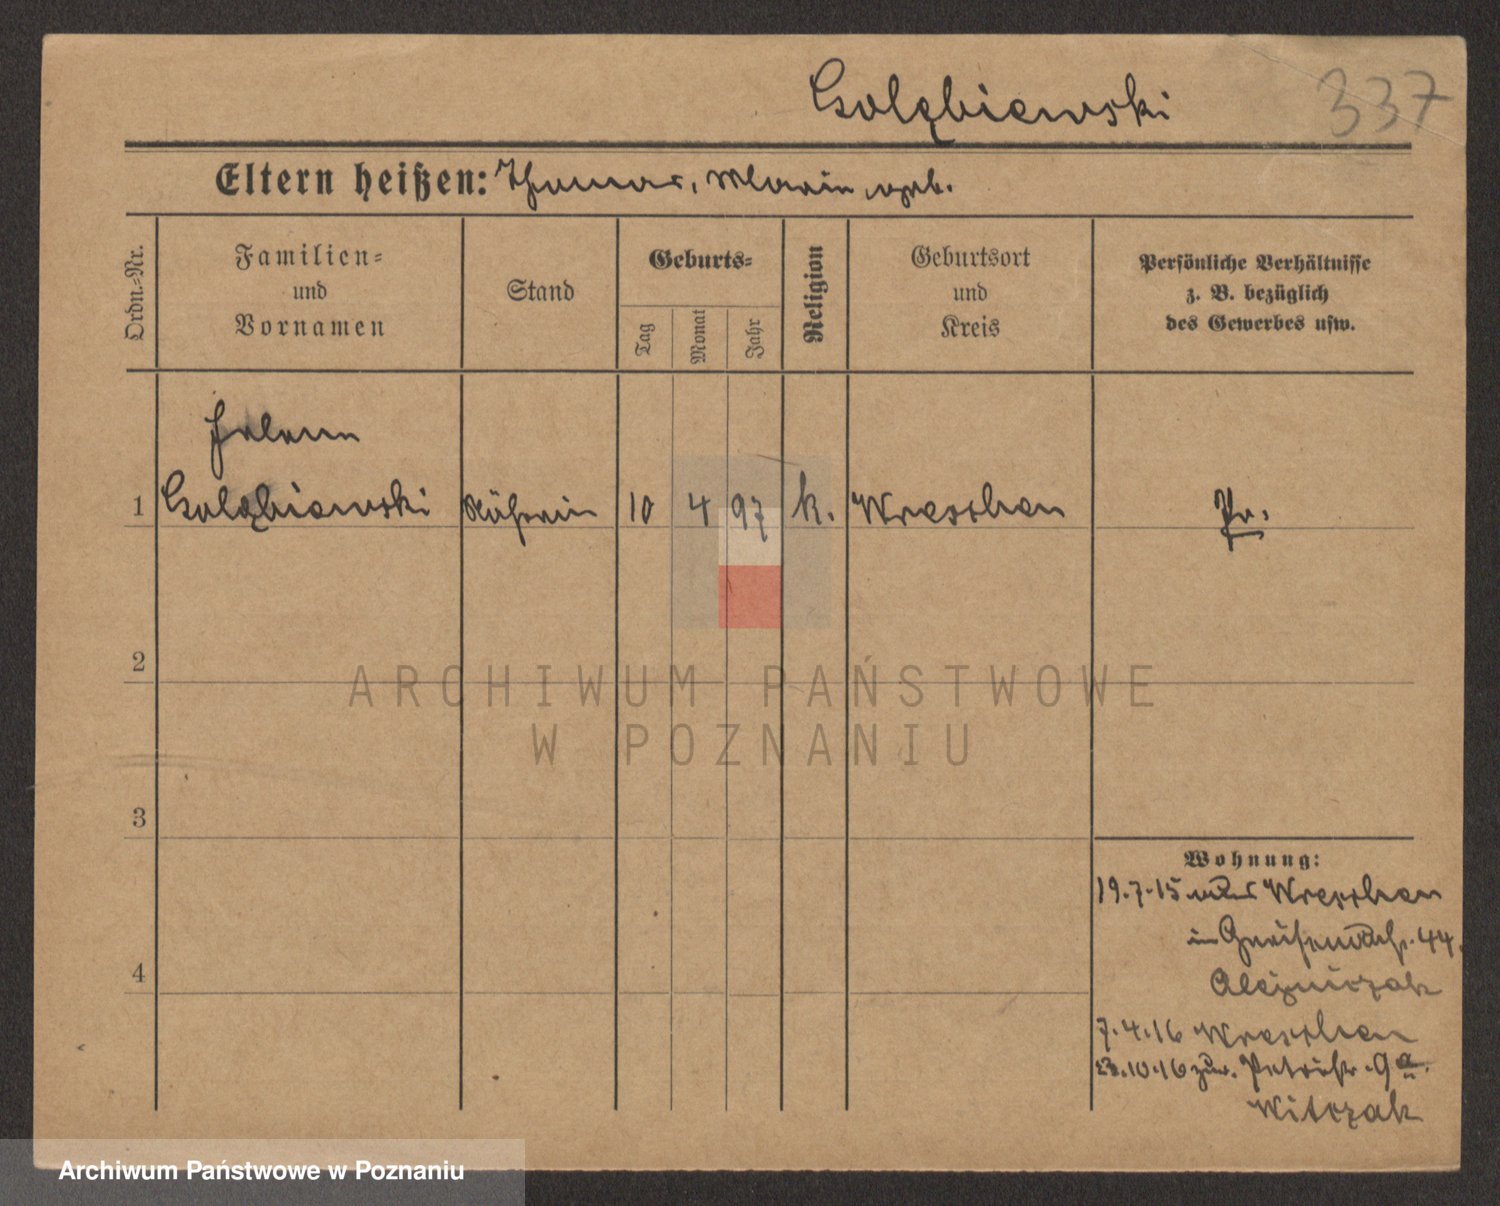 Goląbiewski
337
Eltern heißen: Thomas, Marie, geb.
Ordn.-Nr.
Familien-
und
Vornamen
Stand
Geburts-
Tag
Monat
Jahr
Religion
Geburtsort
und
Kreis
Persönliche Verhältnisse
z. B. bezüglich
des Gewerbes usw.
Helene
1 Goląbiewski Näherin 10 4 97 k. Wreschen Pr.
2
ARCHIWUM PAŃSTWOWE
W POZNANIU
3
Wohnung:
19.7.15 aus Wreschen
in 44.
4
7.4.16 Wreschen
.10.16 zur. Petristr. 9a
Witczak
Archiwum Państwowe w Poznaniu